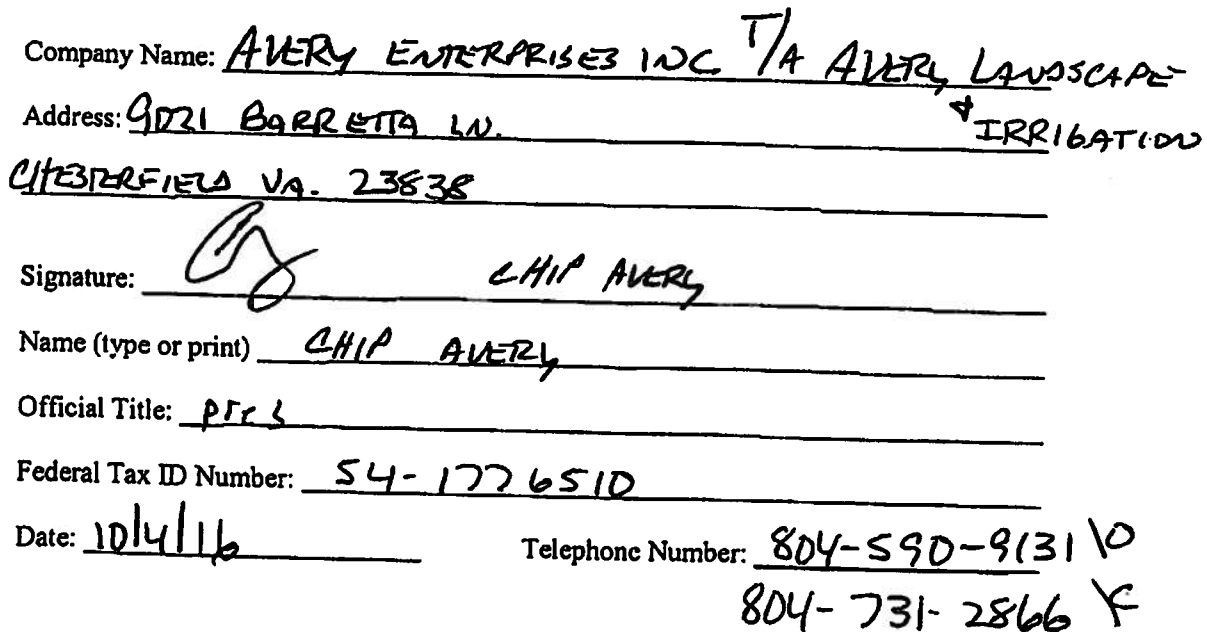 Company Name: AVERY ENTERPRISES INC. T/A AVERY LANDSCAPE
& IRRIGATION
Address: 9021 BARRETTA LN.
CHESTERFIELD VA. 23838
Signature: CHIP AVERY
Name (type or print) CHIP AVERY
Official Title: pres
Federal Tax ID Number: 54-1776510
Date: 10/4/16 Telephone Number: 804-590-9131 \O
804-731-2866 \F